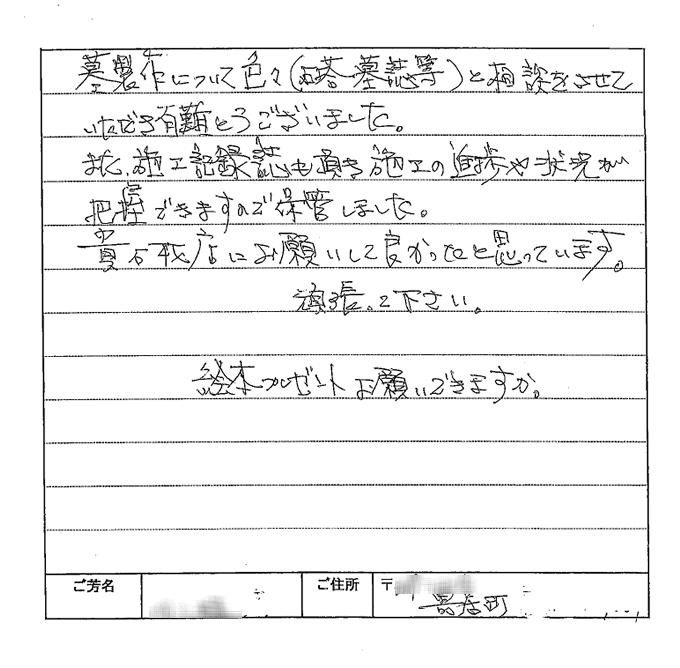 墓製作について色々(石塔墓誌等)と相談をさせて
いただき有難とうございました。
また、施工記録誌も頂き施工の進捗や状況が
把握できますので保管しました。
貴石材店にお願いして良かったと思っています。
頑張って下さい。
絵本プレゼントお願いできますか。
ご芳名
ご住所 〒
寄居町